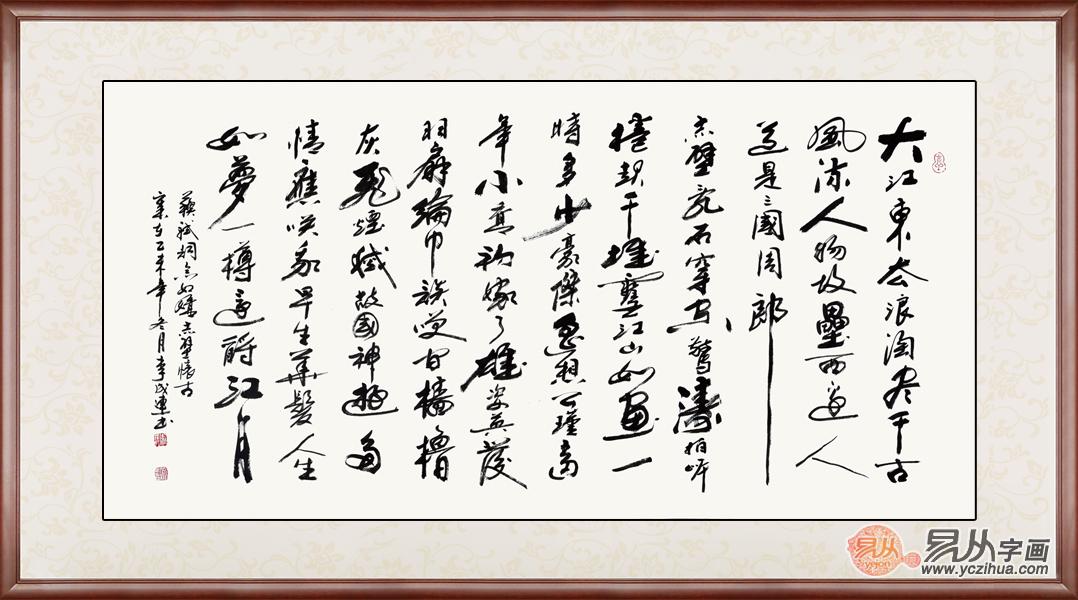 大江東去浪淘盡千古
風流人物故壘西邊人
道是三國周郎
赤壁亂石穿空驚濤拍岸
捲起千堆雪江山如畫一
時多少豪傑遙想公瑾當
年小喬初嫁了雄姿英發
羽扇綸巾談笑間檣櫓
灰飛煙滅故國神遊多
情應笑我早生華髮人生
如夢一樽還酹江月
蘇軾詞念奴嬌赤壁懷古
歲在乙未年冬月李成連書
易从
易从字画
www.yczihua.com